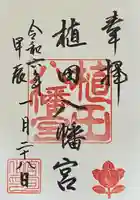 奉拝
植田八幡宮
令和六年十一月二十八日
甲辰
植田
八幡宮